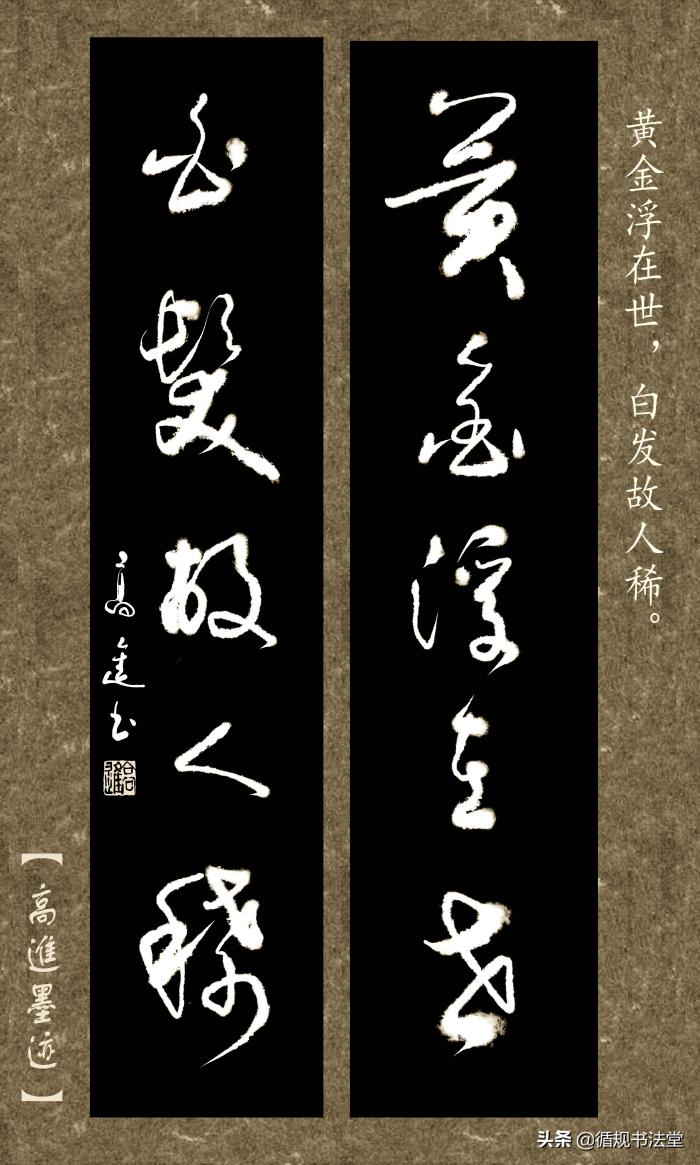 黄金浮在世，白发故人稀。
黃金浮在世
白髮故人稀
高進书
高進
【高進墨迹】
头条 @循规书法堂